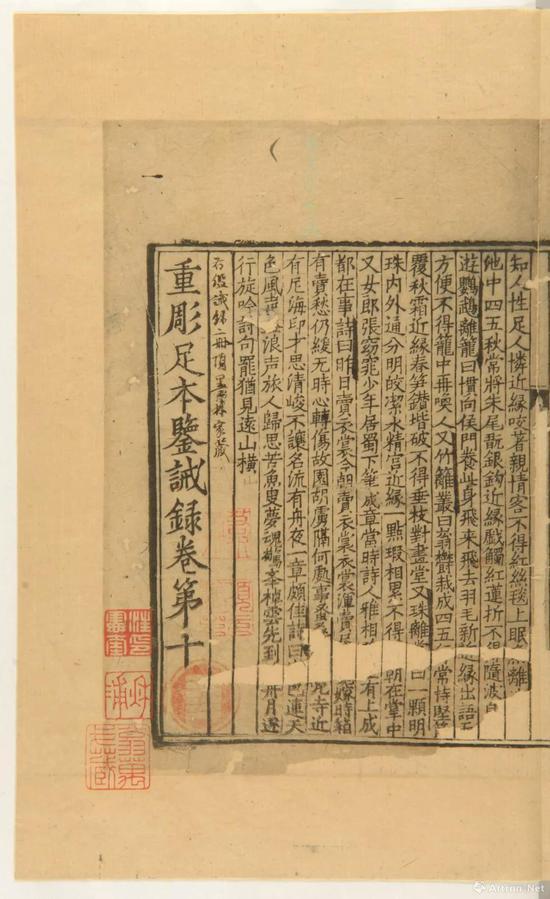 知人性足人憐近緣咬著親情客不得紅絲毯上眠 離
池中四五秋常將朱尾翫銀鈎近緣戲觸紅蓮折不得隨波自
遊鸚鵡離籠曰慣向侯門養此身飛来飛去羽毛新 緣出語
方便不得籠中再喚人又竹離叢曰蓊欝栽成四五 常持堅
覆秋霜近緣春笋鑽堦破不得垂枝對畫堂又珠離 曰一顆明
珠内外通分明皎潔水精宮近緣一點瑕相累不得 朝在掌中
又女郎張窈窕少年居蜀下筆成章當時詩人雅相 有上成
都在事詩曰昨日賣衣裳今朝賣衣裳衣裳渾賣 嫁時箱
有賣愁仍緩無時心轉傷故園胡虜隔何處事 光寺近
有尼海印才思清峻不讓名流有舟夜一章頗佳詩曰 色連天
色風声 浪声旅人歸思苦魚叟夢魂驚舉棹雲先到 舟月逐
行旋吟詩句罷猶見遠山橫
右鑑誡録二冊項墨林家藏
重彫足本鑒誡録卷第十
Artron.Net